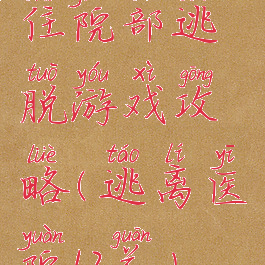 住院部逃
tuō yóu xì gōng
脱游戏攻
lüè táo lí yī
略(逃离医
yuàn guān